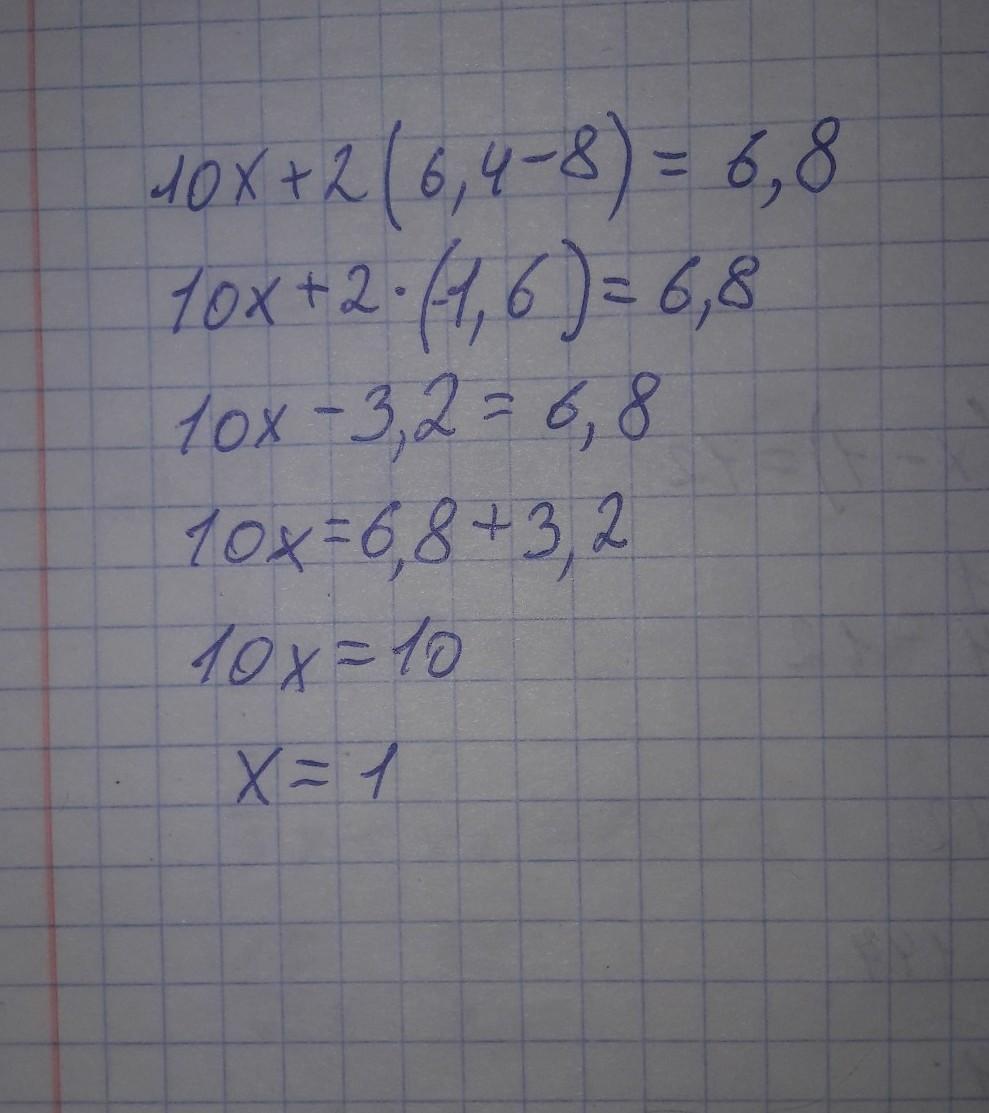 10x+2(6,4-8)=6,8
10x+2·(-1,6)=6,8
10x-3,2=6,8
10x=6,8+3,2
10x=10
x=1